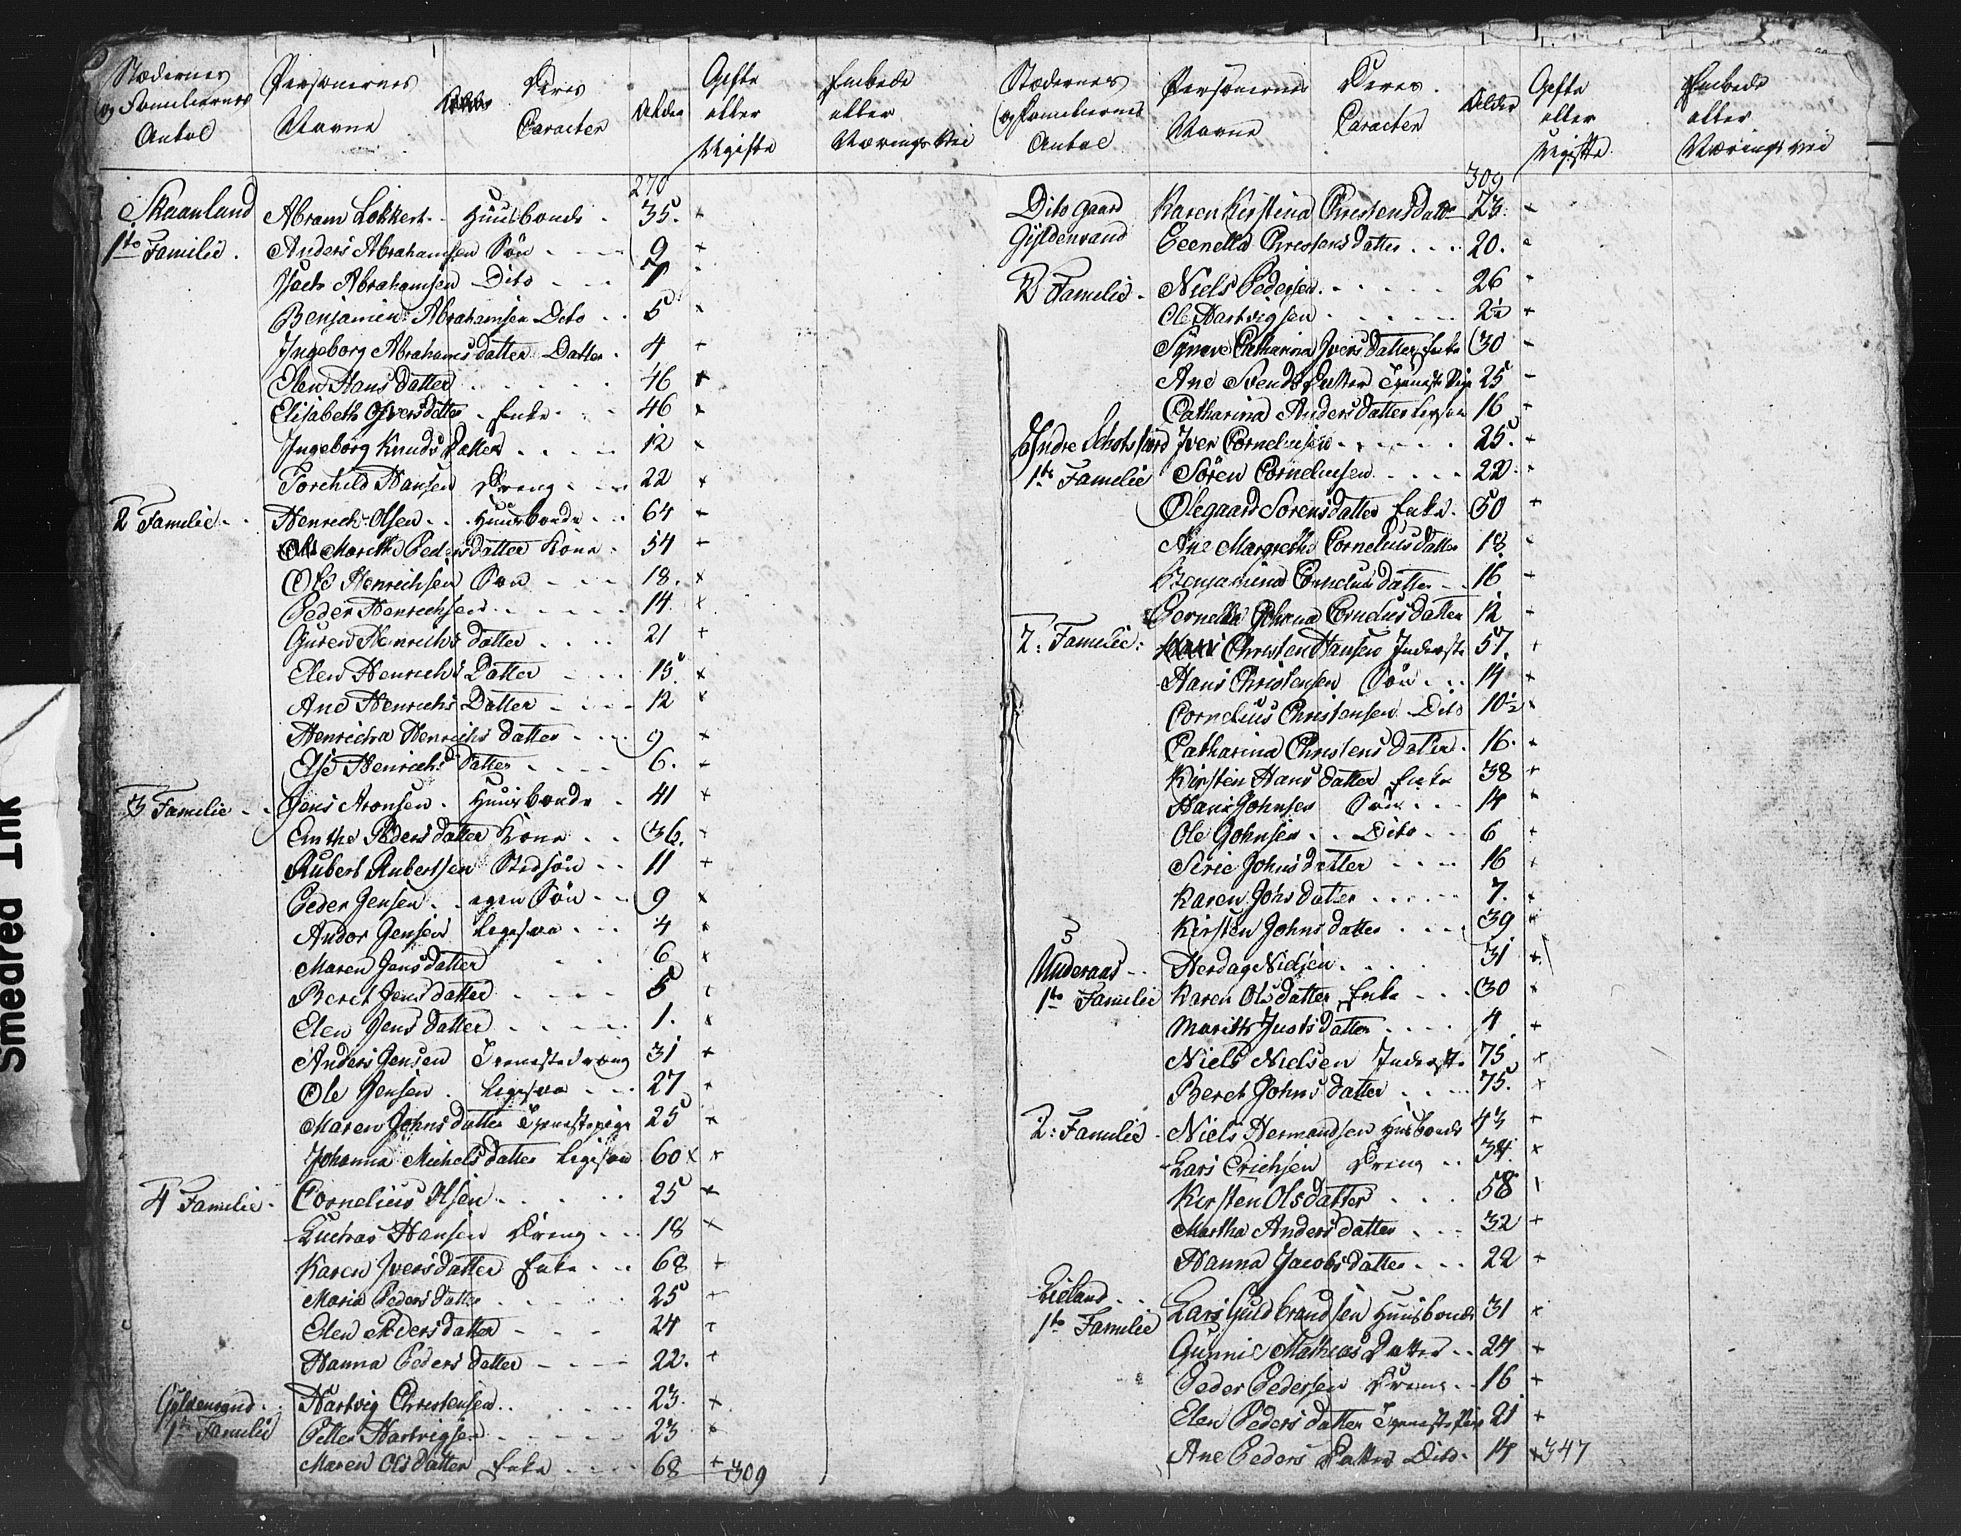 Stædernes og Familiernes Antal | Personernes Navne | Deres Caracter | Alder | Gifte eller Ugifte | Embede eller Nærings Vei
270
Skaanland Abram Lokkert Huusbonde 35 +
1te Familie Anders Abrahamsen Søn 9 +
Isach Abrahamsen Dito 7
Benjamin Abrahamsen Dito 5 +
Ingeborg Abrahams datter Datter 4 +
Elen Hans datter 46 +
Elisabeth Ifvers datter Enke 46 +
Ingeborg Knuds Datter 12 +
Torchild Hansen Dreng 22 +
2 Familie Henrich Olsen Huusbonde 64 +
Marithe Peders datter Kone 54 -
Ole Henrichsen Søn 18 +
Peder Henrichsen 14 +
Guren Henrichs datter 21 +
Elen Henrichs Datter 15 +
Ane Henrichs Datter 12 +
Henricha Henrichs datter 9 +
Else Henrichs datter 6 +
3 Familie Jens Aronsen Huusbonde 41 +
Peders datter Kone 36
Rubert Rubertsen Stedsøn 11 +
Peder Jensen egen Søn 9 x
Andor Jensen Ligesaa 4 +
Maren Jens datter 6 x
Beret Jens datter 5
Elen Jens datter 1 x
Anders Jensen Tienestedreng 31 +
Ole Jensen Ligesaa 27 +
Maren Johns datter Tjenestepige 25 +
Johanna Michels datter Ligesaa 60 x x
4 Familie Cornelius Olsen 25 +
Hansen Dreng 18 +
Karen Ivers datter Enke 68 +
Maria Peders datter 25 +
Elen Peders datter 24 +
Hanna Peders datter 22 +
Gyldenvand Hartvig Christensen 23 +
1te Familie Petter Hartvigsen 23 x
Maren Ols datter Enke 68 +
309
Stædernes og Familiernes Antal | Personernes Navne | Deres Caracter | Alder | Gifte eller Ugifte | Embede eller Nærings Vei
309
Dito Gaard Karen Kirstina Christens datter 23 -
Gyldenvand Christens datter 20
2 Familie Niels Pedersen 26 -
Ole Hartvigsen 2½ +
Synove Catharina Ivers datter Enke 30 -
Ane Svends Datter Tjeneste Pige 25 -
Catharina Anders datter Ligesaa 16 +
Indre Iver Cornelius­en 25 +
1te Familie Sören Corneliusen 22 +
Olegaard Sorens datter Enke 50 +
Ane Margrethe Cornelius datter 18 -
Benjamina Cornelius datter 16 -
Pernella Johana Cornelius datter 12 -
2: Familie: Christen Hansen Inderste 57 +
Hans Christensen Søn 14 +
Cornelius Christensen Dito 10½ x
Catharina Christens datter 16 +
Kirsten Hans datter Enke 38 +
Hans Johnsen Søn 14 +
Ole Johnsen Dito 6 +
Serie Johns datter 16 +
Karen Johs datter 7 +
Kirsten Johns datter 39 +
5
Underaas Herdag Nielsen 31 +
1te Familie Karen Ols datter Enke 30 x
Marith Justs datter 4 +
Niels Nielsen Inderste 75 x
Beret Johns datter 75 +
2: Familie Niels Hermandsen Husbonde 43 +
Lars Erichsen Dreng 34 x
Kirsten Ols datter 58 +
Martha Anders datter 32 +
Hanna Jacobs datter 22 +
Lieland Lars Guldbrandsen Huusbonde 31 x
1te Familie Gunni Mathias Datter 24 +
Peder Pedersen Dreng 16 +
Elen Peders datter Tjeneste Pige 21 +
Ane Peders Datter Dito 14 x 347
Smedred Ink